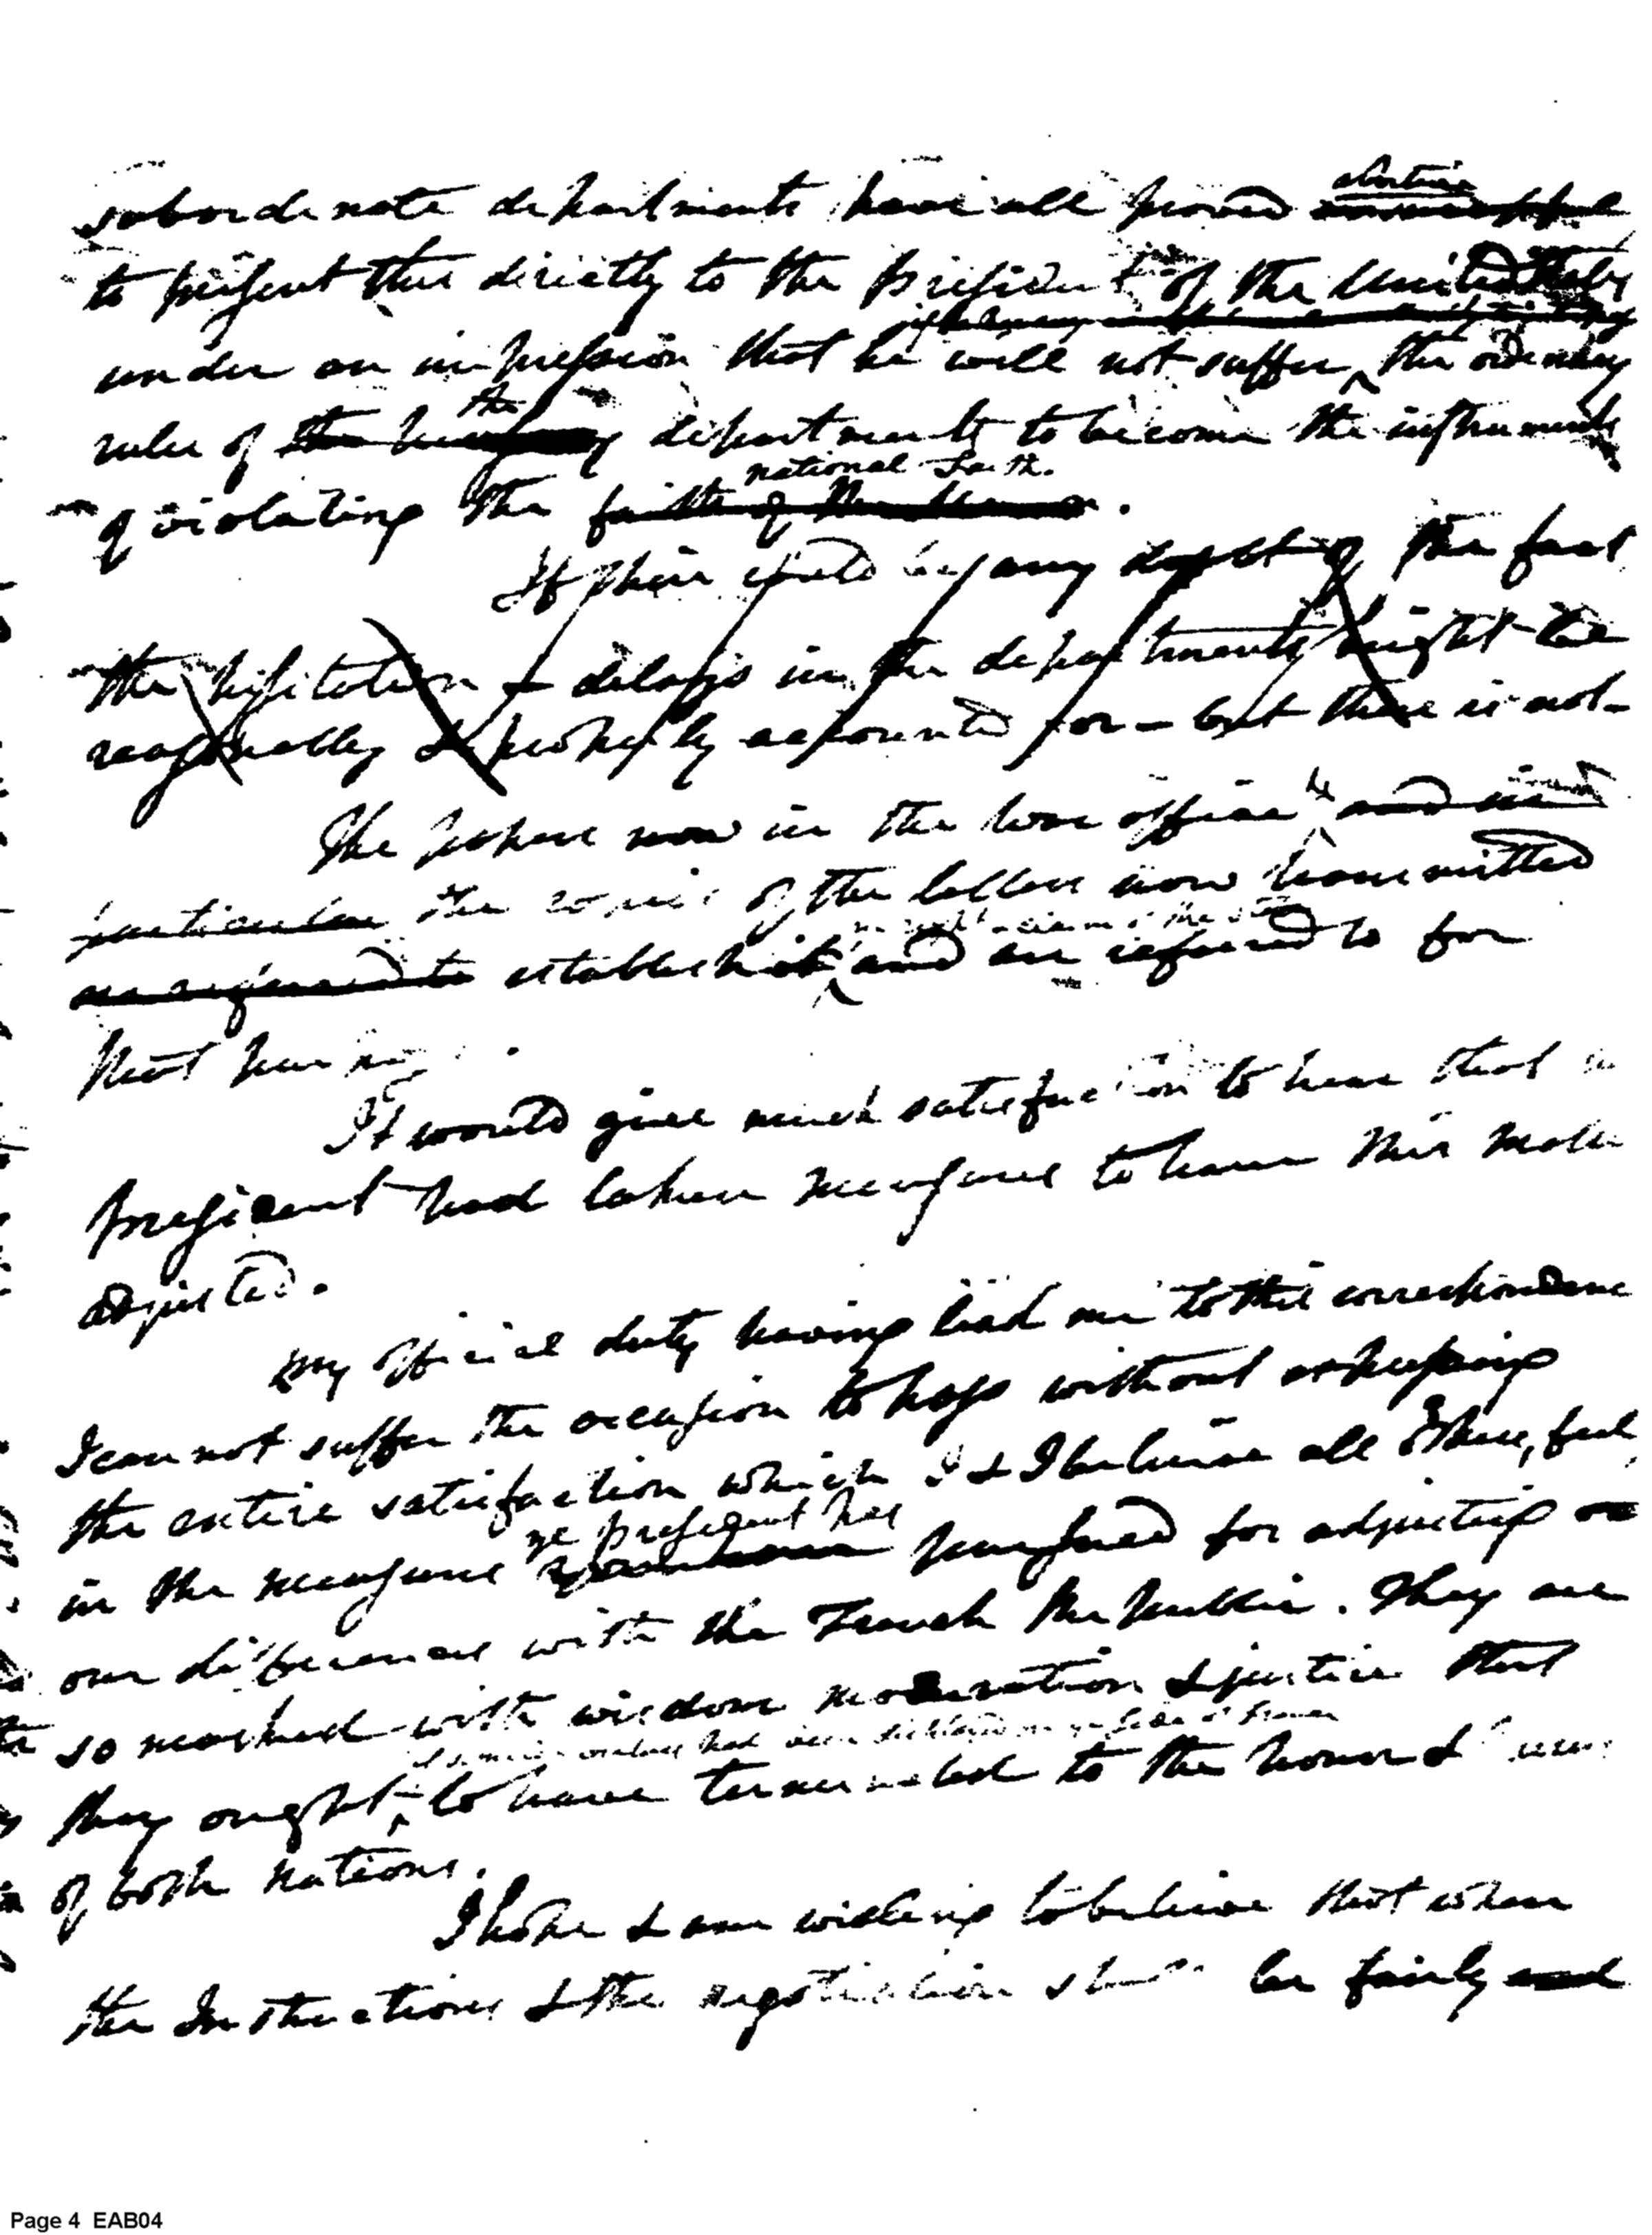 subordinate departments have all proved abortive unsuccessful
to present this directly to the president of the United States
under an impression that he will not suffer the ordinary
rules of the the departments to become the instruments
of violating the faith of the national faith.
If there could be any doubt of the fact
the hesitation & delays in the departments might be
reasonably & properly accounted for — but there is not —
The papers now in the war office & and in
particular the copies of the letters now transmitted
are referred to establish it and are referred to for
that purpose.
It would give much satisfaction to hear that
president had taken measures to have this matter
adjusted.
My official duty having lead me to this correspondence
I can not suffer the occasion to pass without expressing
the entire satisfaction which I & I believe all others, feel
in the measures ye president has pursued for adjusting
our differences with the French Republic. They are
so marked with wisdom moderation & justice that
they ought to have terminated to the honor &
of both nations.
I hope & am willing to believe that when
the Instructions & the negotiation shall be fairly and
Page 4 EAB04